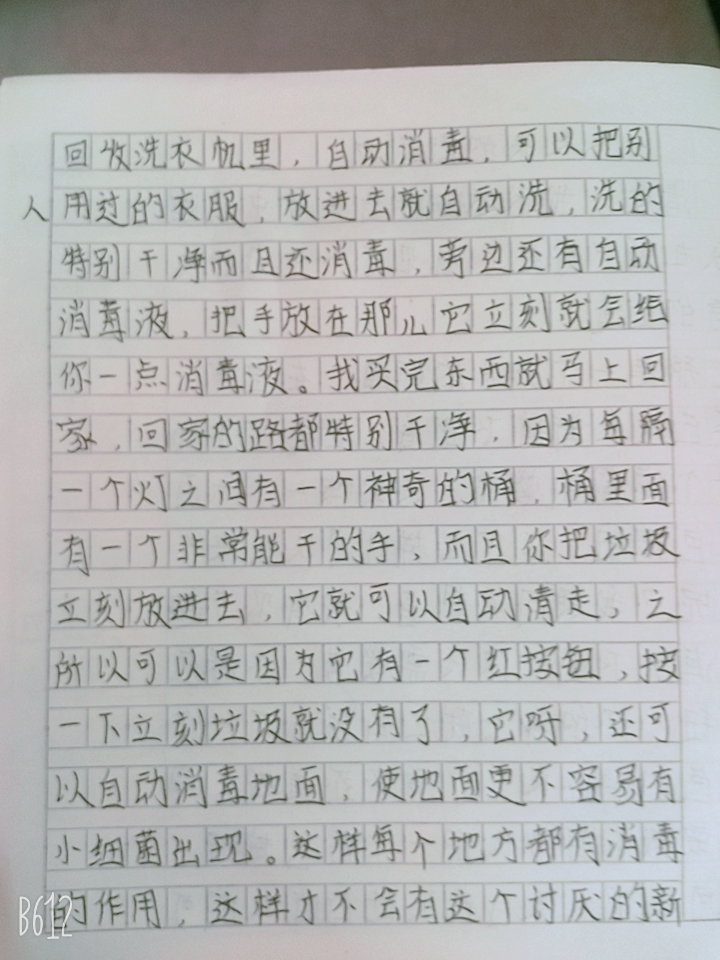 回收洗衣机里，自动消毒，可以把别
人用过的衣服，放进去就自动洗，洗的
特别干净而且还消毒，旁边还有自动
消毒液，把手放在那儿它立刻就会给
你一点消毒液。我买完东西就马上回
家，回家的路都特别干净，因为每隔
一个灯之间有一个神奇的桶，桶里面
有一个非常能干的手，而且你把垃圾
立刻放进去，它就可以自动清走，之
所以可以是因为它有一个红按钮，按
一下立刻垃圾就没有了，它呀，还可
以自动消毒地面，使地面更不容易有
小细菌出现。这样每个地方都有消毒
的作用，这样才不会有这个讨厌的新
B612